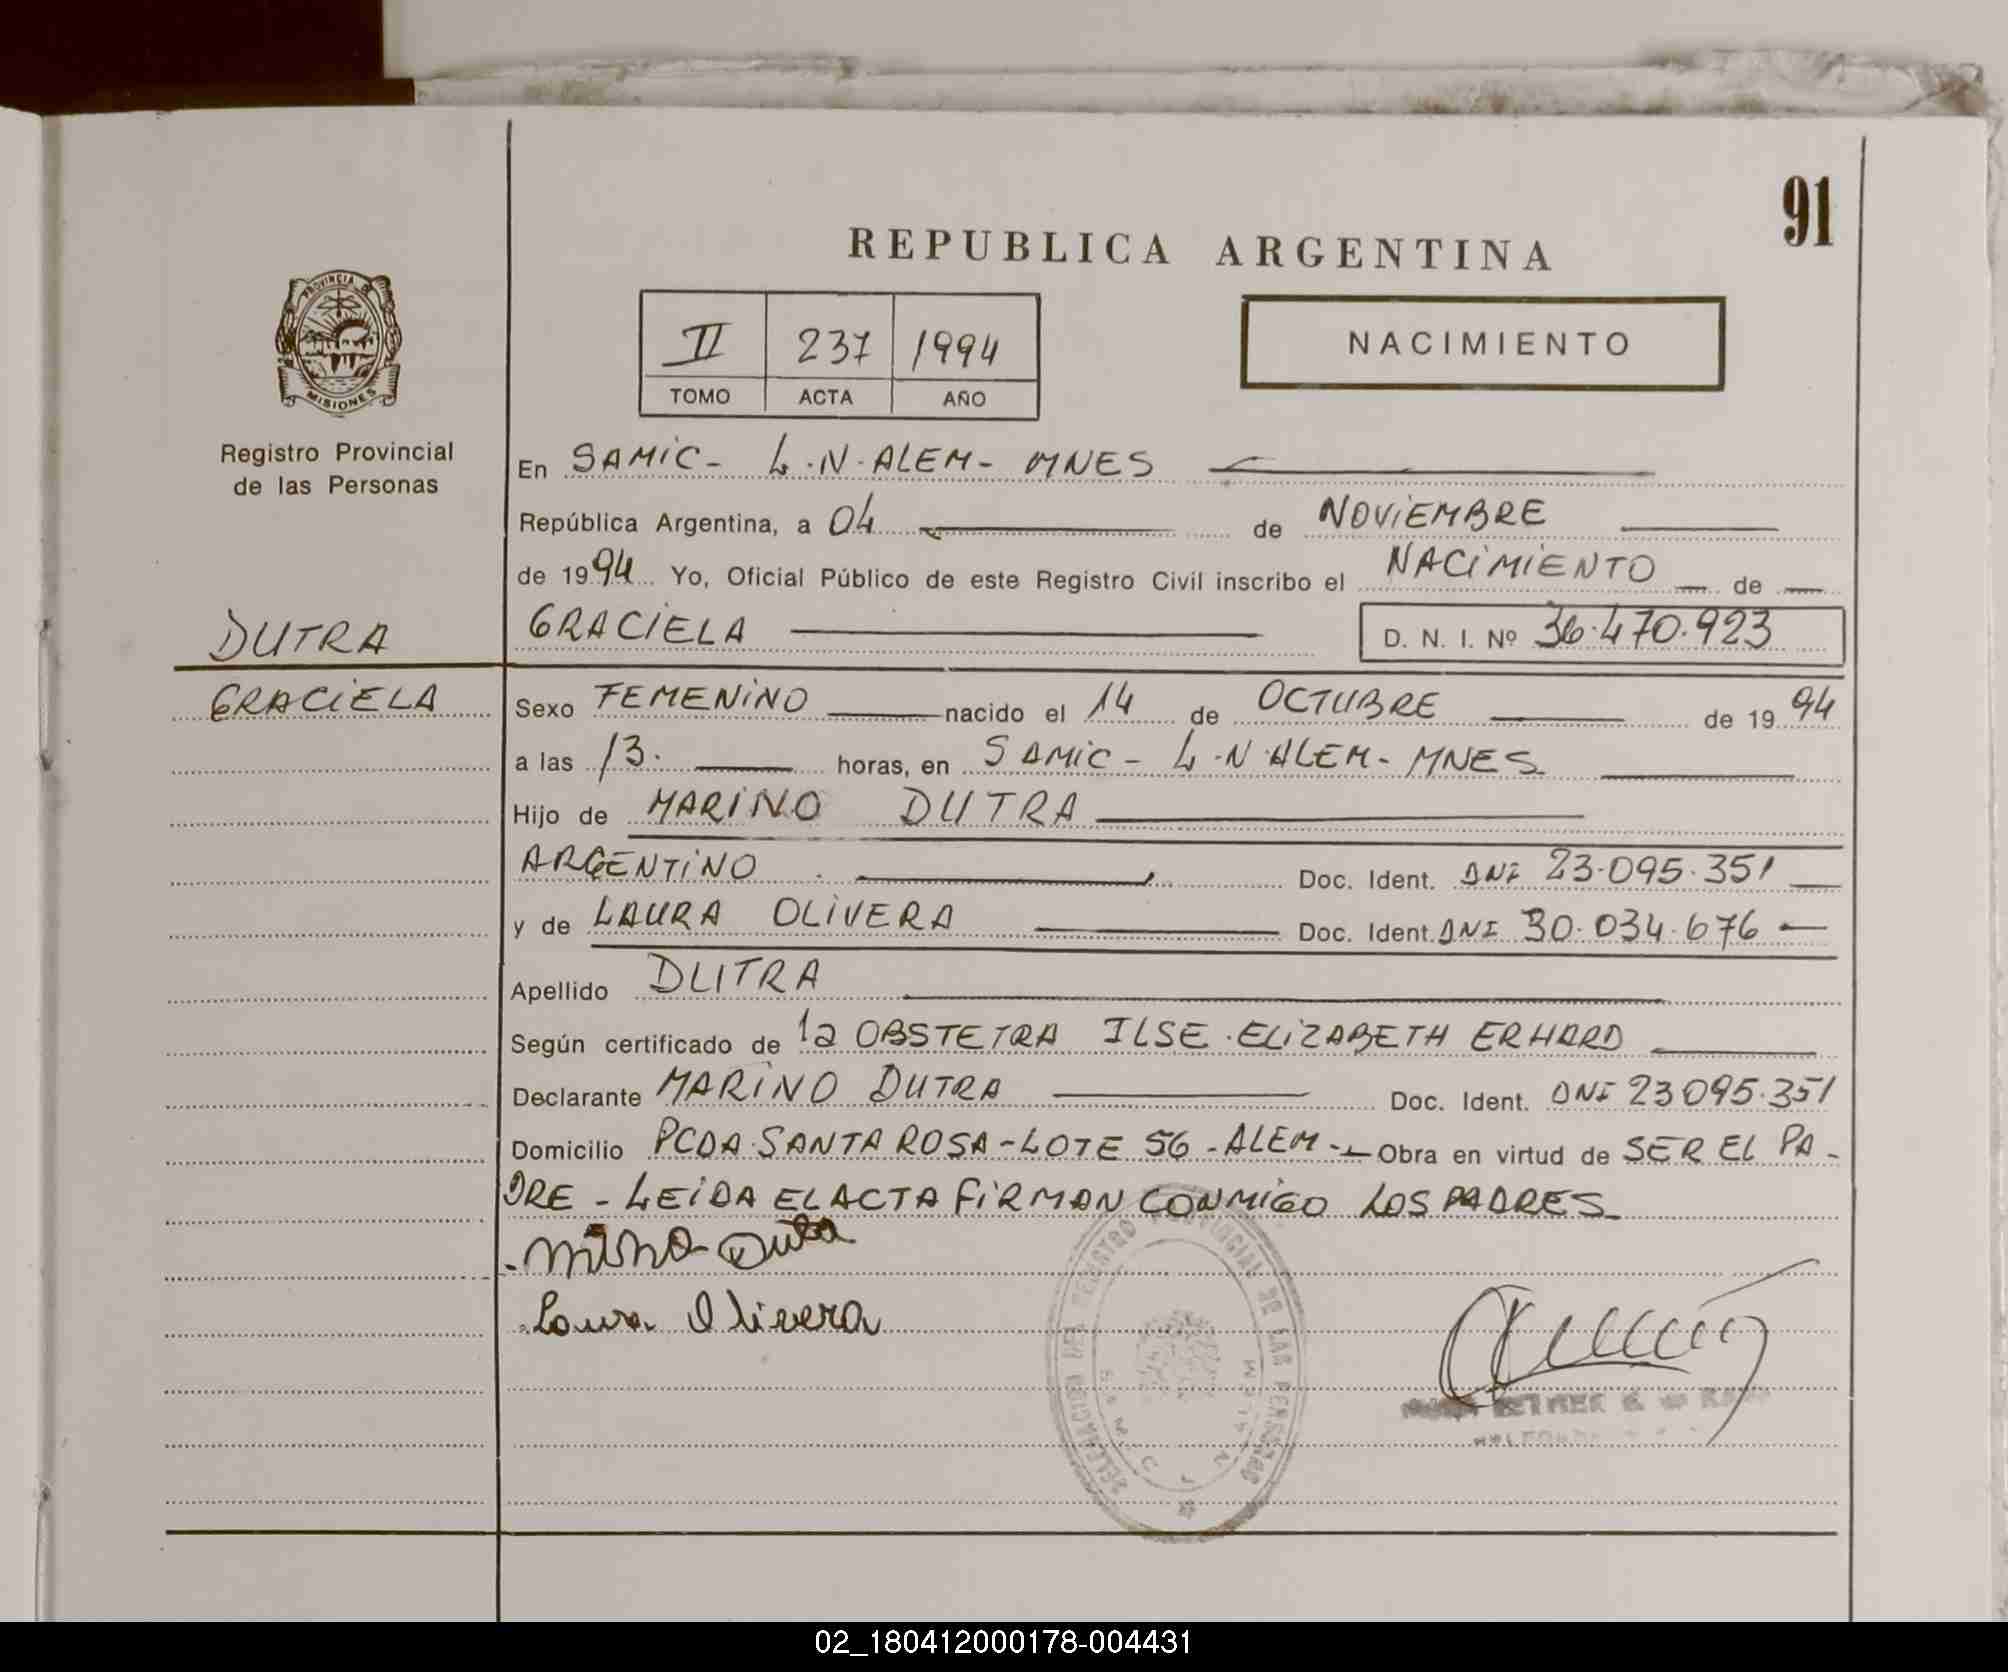 91
REPUBLICA ARGENTINA
PROVINCIA DE
MISIONES
Registro Provincial
de las Personas
II 237 1994
TOMO ACTA AÑO
NACIMIENTO
En SAMIC- L.N.ALEM- MNES
República Argentina, a 04 de NOVIEMBRE
de 1994 Yo, Oficial Público de este Registro Civil inscribo el NACIMIENTO de
DUTRA
GRACIELA D. N. I. Nº 36.470.923
GRACIELA
Sexo FEMENINO nacido el 14 de OCTUBRE de 1994
a las 13. horas, en SAMIC- L.N.ALEM- MNES
Hijo de MARINO DUTRA
ARGENTINO Doc. Ident. DNI 23.095.351
y de LAURA OLIVERA Doc. Ident. DNI 30.034.676
Apellido DUTRA
Según certificado de la OBSTETRA ILSE ELIZABETH ERHARD
Declarante MARINO DUTRA Doc. Ident. DNI 23095.351
Domicilio PCDA SANTA ROSA-LOTE 56-ALEM- Obra en virtud de SER EL PA-
DRE - LEIDA EL ACTA FIRMAN CONMIGO LOS PADRES
Dutra
Laura Olivera
DELEGACION DEL REGISTRO PROVINCIAL DE LAS PERSONAS
SAMIC L N ALEM
ESTHER
02_180412000178-004431